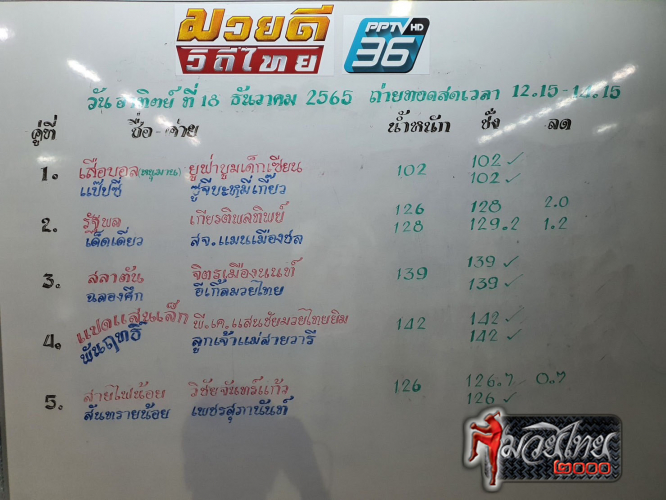 มวยดี
วิถีไทย
PPTV HD
36
วันอาทิตย์ ที่ 18 ธันวาคม 2565 ถ่ายทอดสดเวลา 12.15-14.15
คู่ที่ ชื่อ-ค่าย น้ำหนัก ชั่ง ลด
1. เสือบอล(หนุมาน) ยูฟ่าบูมเด็กเซียน 102 102 ✓
แป๊ปซี่ ซูจีบะหมี่เกี๊ยว 102 ✓
2. รัฐพล เกียรติพลทิพย์ 126 128 2.0
เด็ดเดี่ยว สจ.แมนเมืองชล 128 129.2 1.2
3. สลาตัน จิตรเมืองนนท์ 139 139 ✓
ฉลองศึก อีเกิ้ลมวยไทย 139 ✓
4. แปดแสนเล็ก พี.เค.แสนชัยมวยไทยยิม 142 142 ✓
พันฤทธิ์ ลูกเจ้าแม่สายวารี 142 ✓
5. สายไฟน้อย วิชัยจันทร์แก้ว 126 126.7 0.7
สันทรายน้อย เพชรสุภานันท์ 126 ✓
มวยไทย
๒๐๐๐